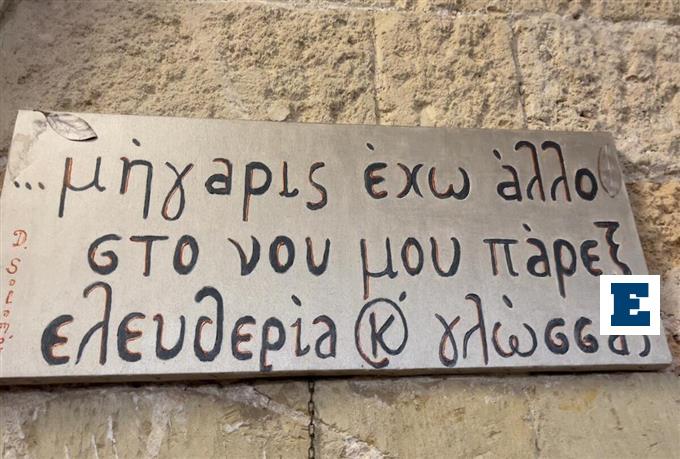 ...μήγαρις έχω άλλο
στο νου μου πάρεξ
ελευθερία κ' γλώσσα;
D.
E